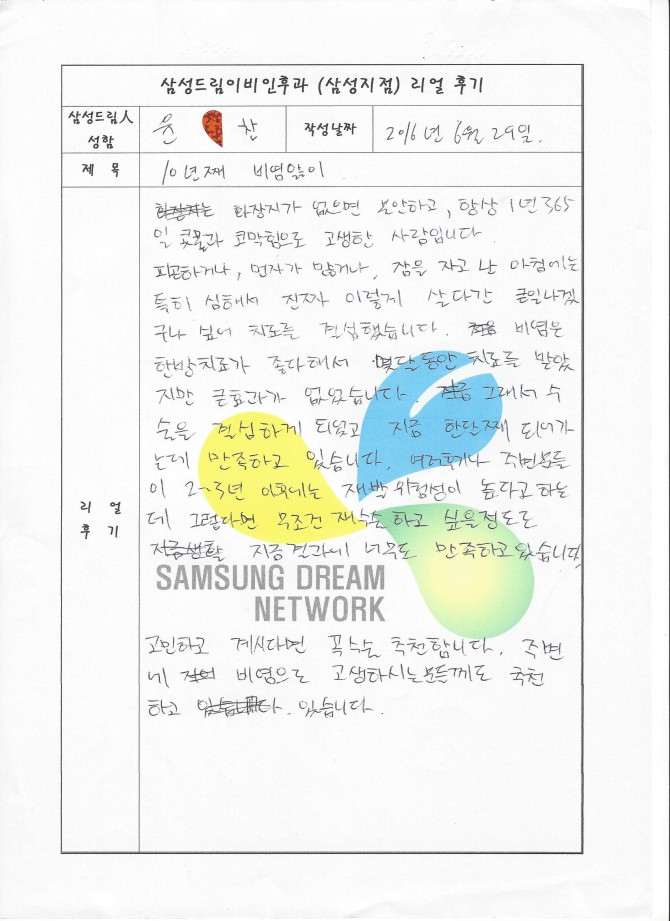 삼성드림이비인후과 (삼성지점) 리얼 후기
삼성드림人
성함
윤 찬
작성날짜
2016년 6월 29일.
제 목
10년째 비염앓이
화장지가 없으면 불안하고, 항상 1년 365
일 콧물과 코막힘으로 고생한 사람입니다
피곤하거나, 먼지가 많거나, 잠을 자고 난 아침에는
특히 심해서 진짜 이렇게 살다간 큰일나겠
구나 싶어 치료를 결심했습니다. 비염은
한방치료가 좋다해서 몇달동안 치료를 받았
지만 큰효과가 없었습니다. 그래서 수
술을 결심하게 되었고 지금 한달째 되어가
는데 만족하고 있습니다. 여러후기나 주변분들
이 2~3년 이후에는 재발위험성이 높다고 하는
데 그렇다면 무조건 재수술하고 싶을정도로
지금결과에 너무도 만족하고있습니다
리 얼
후 기
SAMSUNG DREAM
NETWORK
고민하고 계시다면 꼭수술 추천합니다. 주변
에 비염으로 고생하시는분들께도 추천
하고 있습니다.